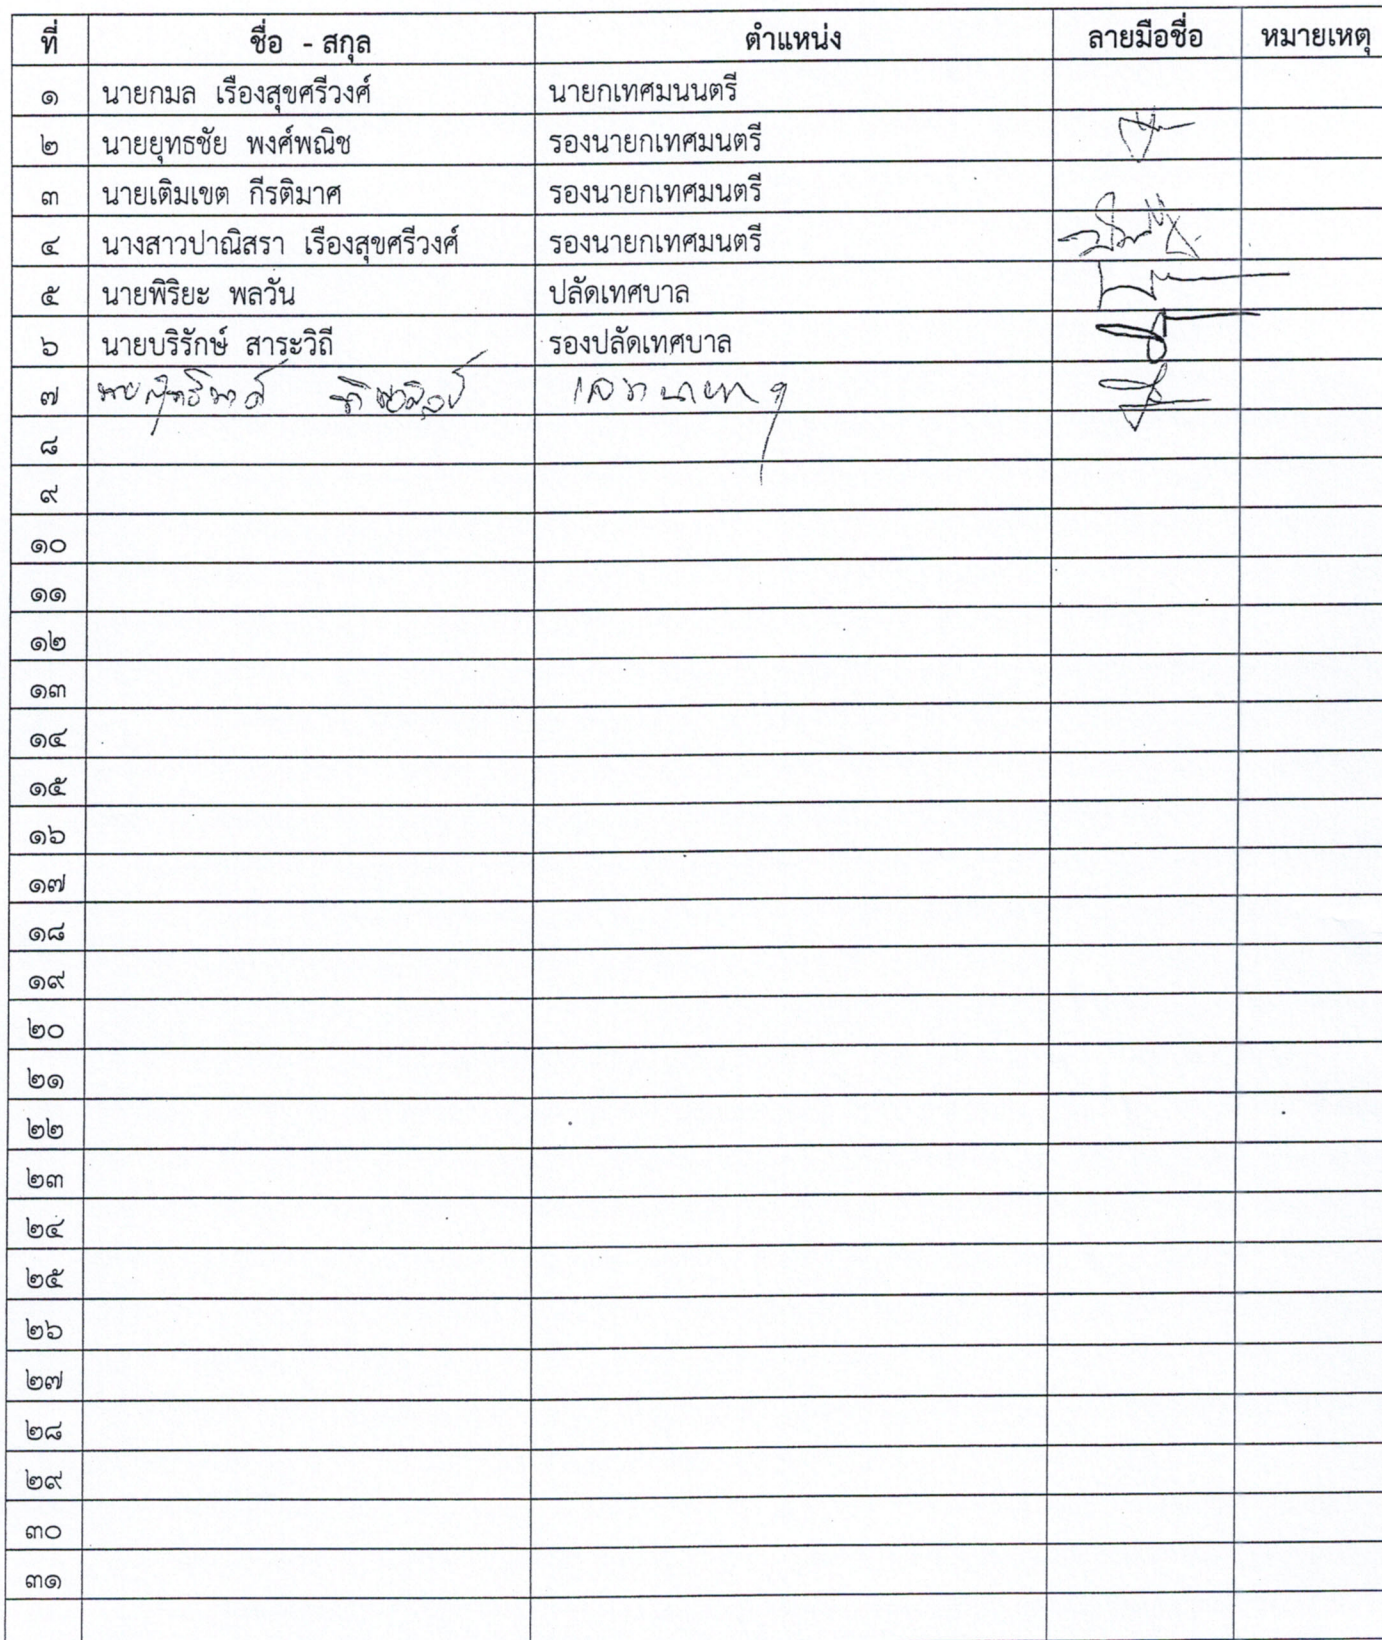 ที่ ชื่อ - สกุล ตำแหน่ง ลายมือชื่อ หมายเหตุ
๑ นายกมล เรืองสุขศรีวงศ์ นายกเทศมนนตรี
๒ นายยุทธชัย พงศ์พณิช รองนายกเทศมนตรี
๓ นายเติมเขต กีรติมาศ รองนายกเทศมนตรี
๔ นางสาวปาณิสรา เรืองสุขศรีวงศ์ รองนายกเทศมนตรี
๕ นายพิริยะ พลวัน ปลัดเทศบาล
๖ นายบริรักษ์ สาระวิถี รองปลัดเทศบาล
๗
๘
๙
๑๐
๑๑
๑๒
๑๓
๑๔
๑๕
๑๖
๑๗
๑๘
๑๙
๒๐
๒๑
๒๒
๒๓
๒๔
๒๕
๒๖
๒๗
๒๘
๒๙
๓๐
๓๑